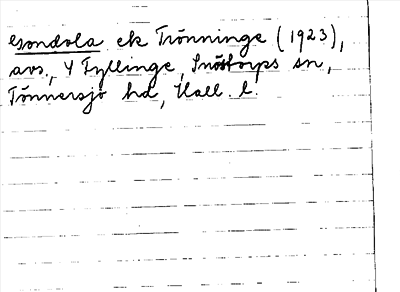 Gondola ek Trönninge (1923),
avs., 4 Fyllinge, Snöstorps sn,
Tönnersjö hd, Hall. l.